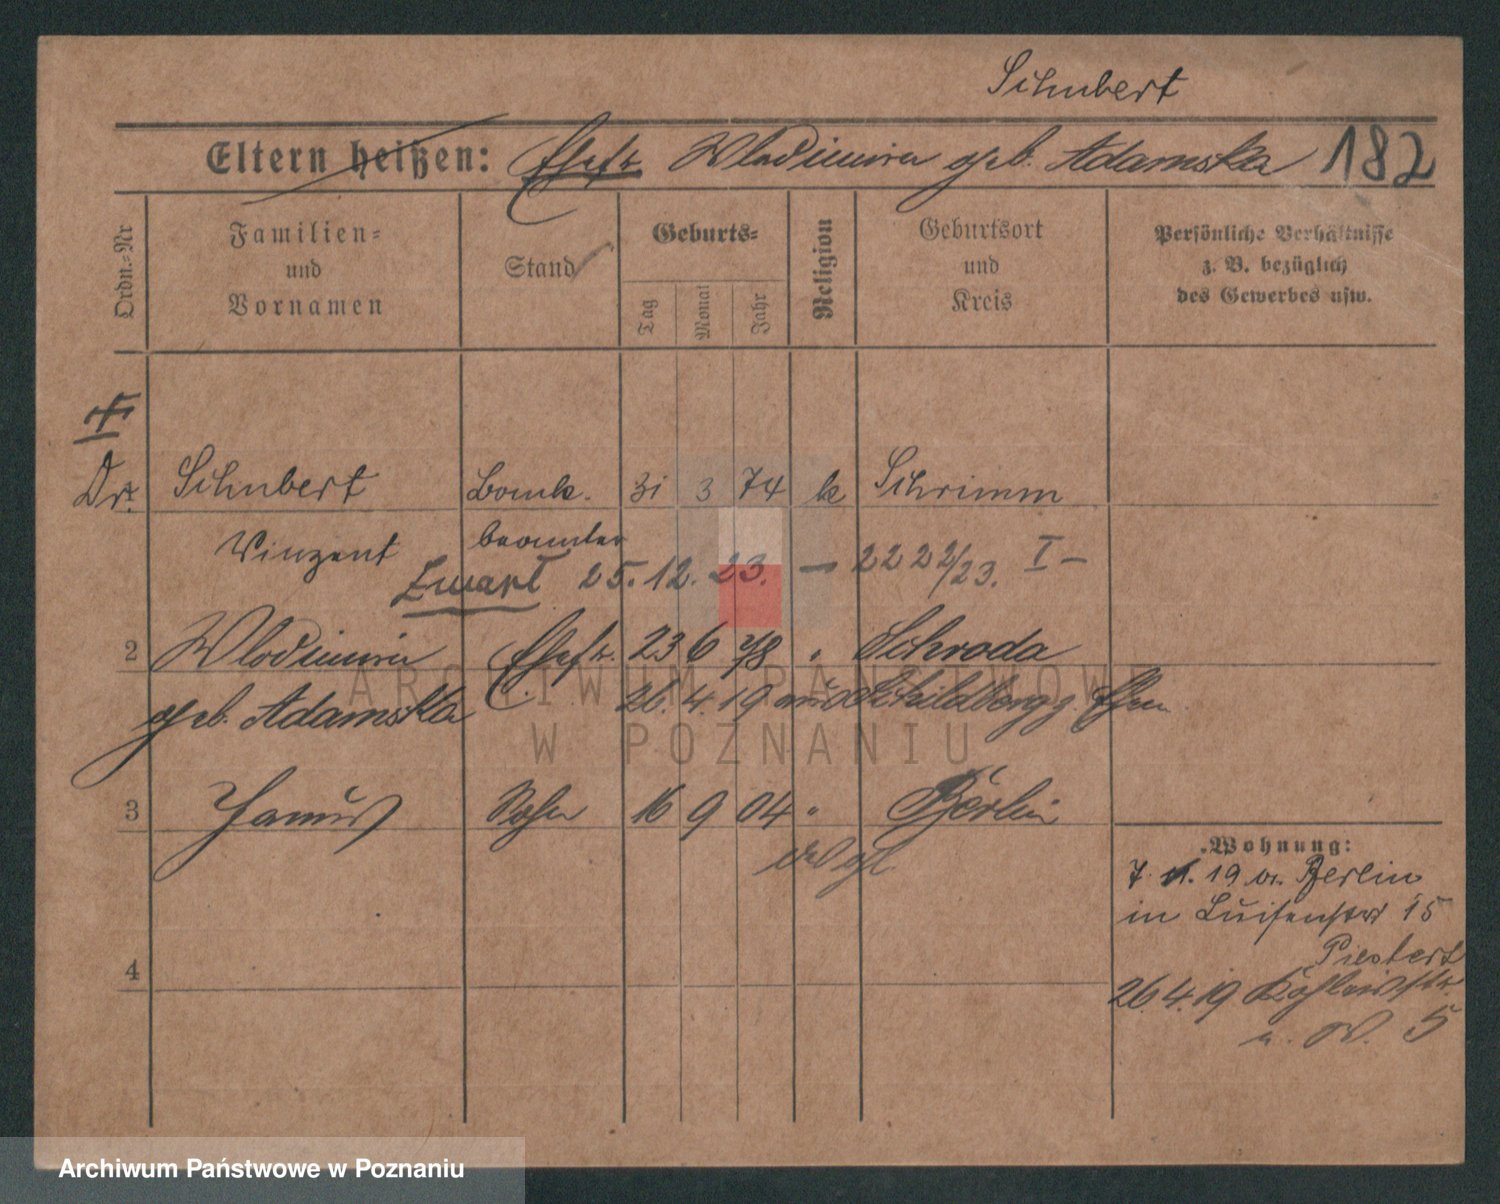 Schubert
Eltern heißen: Ehefr. Wlodimira geb. Adamska 182
Ordn.-Nr
Familien-
und
Vornamen
Stand
Geburts-
Tag
Monat
Jahr
Religion
Geburtsort
und
Kreis
Persönliche Verhältnisse
z. B. bezüglich
des Gewerbes usw.
Dr. Schubert Bank. 31 3 74 k Schrimm
Vinzent beamter
25. 12. 23. — 22 22/23. I –
2 Wlodimira Ehefr. 23 6 78 " Schroda
geb. Adamska 26. 4. 19 Schildberg
3 Janus Sohn 16 9 04 " Berlin
Wohnung:
7. 1. 19 a. Berlin
in Luisenstr 15
26. 4. 19
5
4
ARCHIWUM PAŃSTWOWE
W POZNANIU
Archiwum Państwowe w Poznaniu